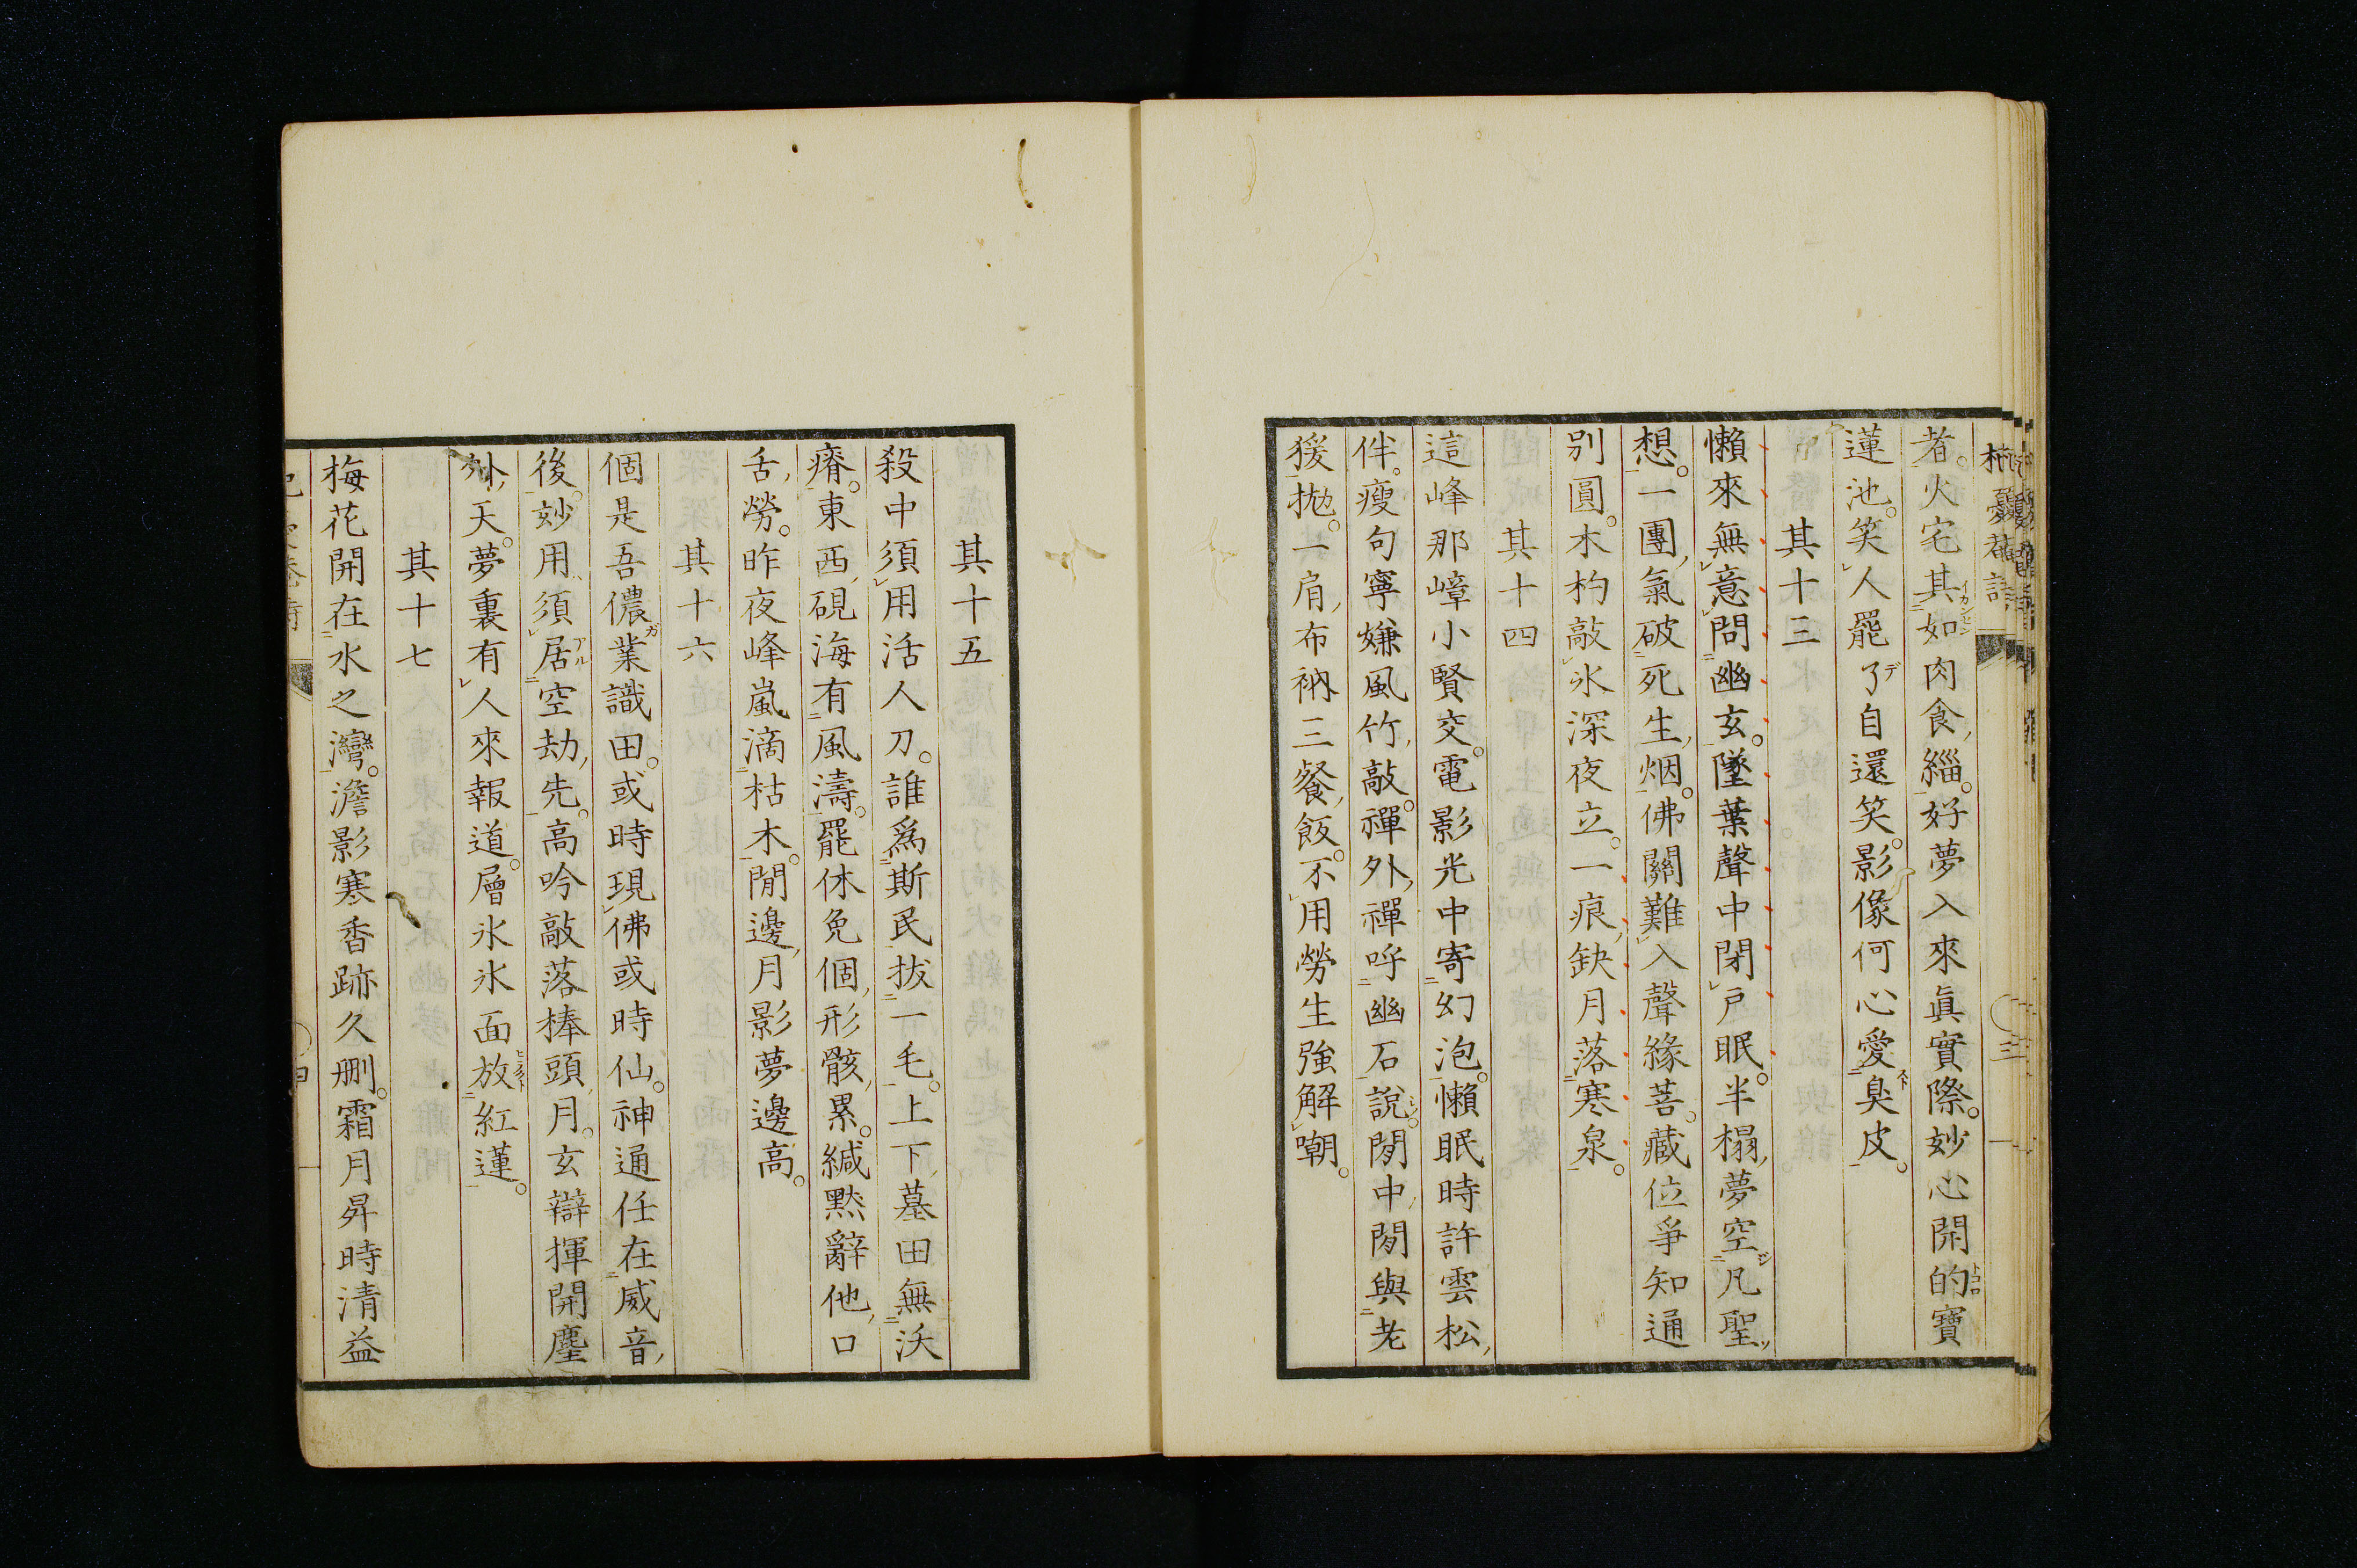 者。火宅其如肉食,緇。好夢入來眞實際。妙心開的寶
蓮池。笑人罷了自還笑。影像何心愛臭皮。
其十三
懶來無意問幽玄。墜葉聲中閉戸眠。半榻,夢空凡聖,
想。一團,氣破死生,烟。佛關難入聲緣菩。藏位爭知通
別圓。木杓敲氷深夜立。一痕,缺月落寒泉。
其十四
這峰那嶂小賢交。電影光中寄幻泡。懶眠時許雲松,
伴。瘦句寧嫌風竹,敲。禪外,禪呼幽石說。閒中,閒與老
猨拋。一肩,布衲三餐,飯。不用勞生強解嘲。
其十五
殺中須用活人刀。誰爲斯民拔一毛。上下,墓田無沃
瘠。東西,硯海有風濤。罷休免個,形骸,累。緘黙辭他,口
舌,勞。昨夜峰嵐滴枯木。閒邊,月影夢邊高。
其十六
個是吾儂業識田。或時現佛或時仙。神通任在威音,
後。妙用須居空劫,先。高吟敲落棒頭,月。玄辯揮開塵
外,天。夢裏有人來報道。層氷氷面放紅蓮。
其十七
梅花開在水之灣。澹影寒香跡久删。霜月昇時清益